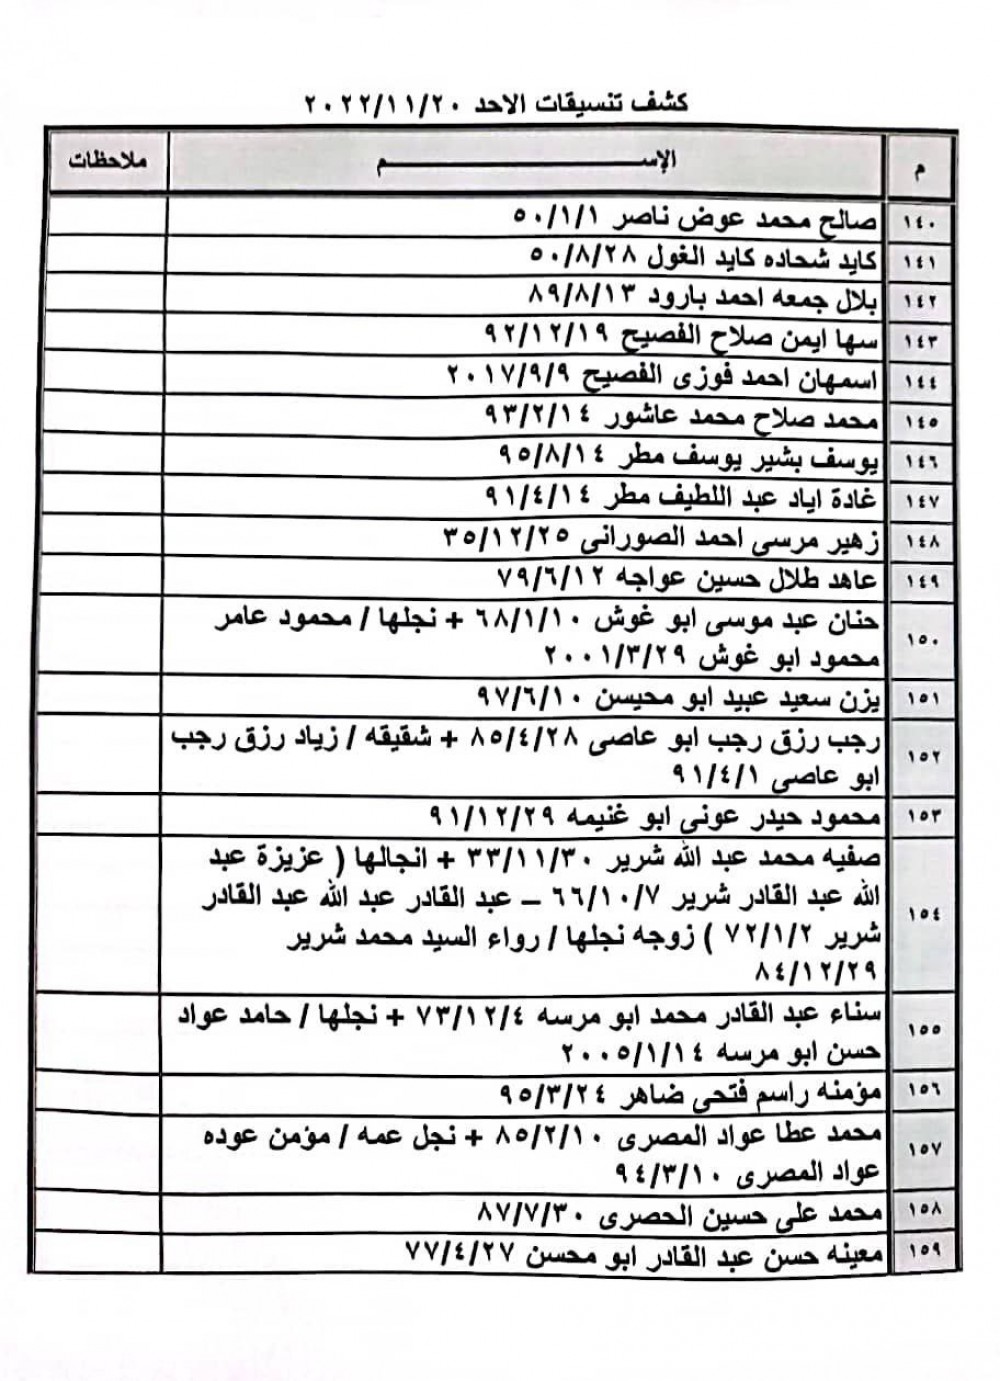 كشف تنسيقات الاحد ٢٠٢٢/١١/٢٠
م الإســـــــــم ملاحظات
١٤٠ صالح محمد عوض ناصر ٥٠/١/١
١٤١ كايد شحاده كايد الغول ٥٠/٨/٢٨
١٤٢ بلال جمعه احمد بارود ٨٩/٨/١٣
١٤٣ سها ايمن صلاح الفصيح ٩٢/١٢/١٩
١٤٤ اسمهان احمد فوزى الفصيح ٢٠١٧/٩/٩
١٤٥ محمد صلاح محمد عاشور ٩٣/٢/١٤
١٤٦ يوسف بشير يوسف مطر ٩٥/٨/١٤
١٤٧ غادة اياد عبد اللطيف مطر ٩١/٤/١٤
١٤٨ زهير مرسى احمد الصورانى ٣٥/١٢/٢٥
١٤٩ عاهد طلال حسين عواجه ٧٩/٦/١٢
١٥٠ حنان عبد موسى ابو غوش ٦٨/١/١٠ + نجلها / محمود عامر
محمود ابو غوش ٢٠٠١/٣/٢٩
١٥١ يزن سعيد عبيد ابو محيسن ٩٧/٦/١٠
١٥٢ رجب رزق رجب ابو عاصى ٨٥/٤/٢٨ + شقيقه / زياد رزق رجب
ابو عاصى ٩١/٤/١
١٥٣ محمود حيدر عونى ابو غنيمه ٩١/١٢/٢٩
١٥٤ صفيه محمد عبد الله شرير ٣٣/١١/٣٠ + انجالها ( عزيزة عبد
الله عبد القادر شرير ٦٦/١٠/٧ – عبد القادر عبد الله عبد القادر
شرير ٧٢/١/٢ ) زوجه نجلها / رواء السيد محمد شرير
٨٤/١٢/٢٩
١٥٥ سناء عبد القادر محمد ابو مرسه ٧٣/١٢/٤ + نجلها / حامد عواد
حسن ابو مرسه ٢٠٠٥/١/١٤
١٥٦ مؤمنه راسم فتحى ضاهر ٩٥/٣/٢٤
١٥٧ محمد عطا عواد المصرى ٨٥/٢/١٠ + نجل عمه / مؤمن عوده
عواد المصرى ٩٤/٣/١٠
١٥٨ محمد على حسين الحصرى ٨٧/٧/٣٠
١٥٩ معينه حسن عبد القادر ابو محسن ٧٧/٤/٢٧